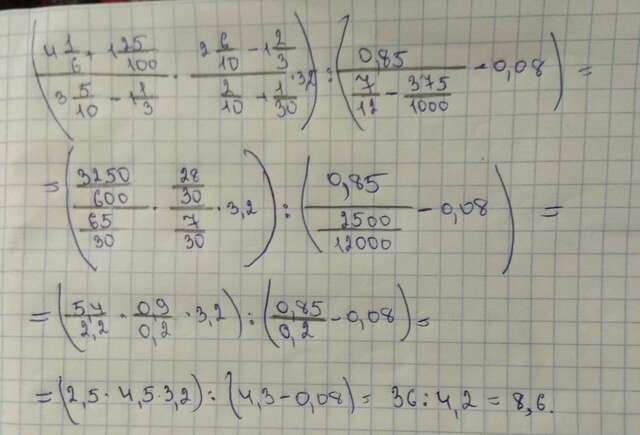 (4 1/6 + 1 25/100 / 3 5/10 - 1 1/3 · 2 6/10 - 1 2/3 / 2/10 + 1/30 · 3,2) : (0,85 / 7/12 - 375/1000 - 0,08) =
= (3250/600 / 65/30 · 28/30 / 7/30 · 3,2) : (0,85 / 2500/12000 - 0,08) =
= (5,4/2,2 · 0,9/0,2 · 3,2) : (0,85/0,2 - 0,08) =
= (2,5 · 4,5 · 3,2) : (4,3 - 0,08) = 36 : 4,2 = 8,6.